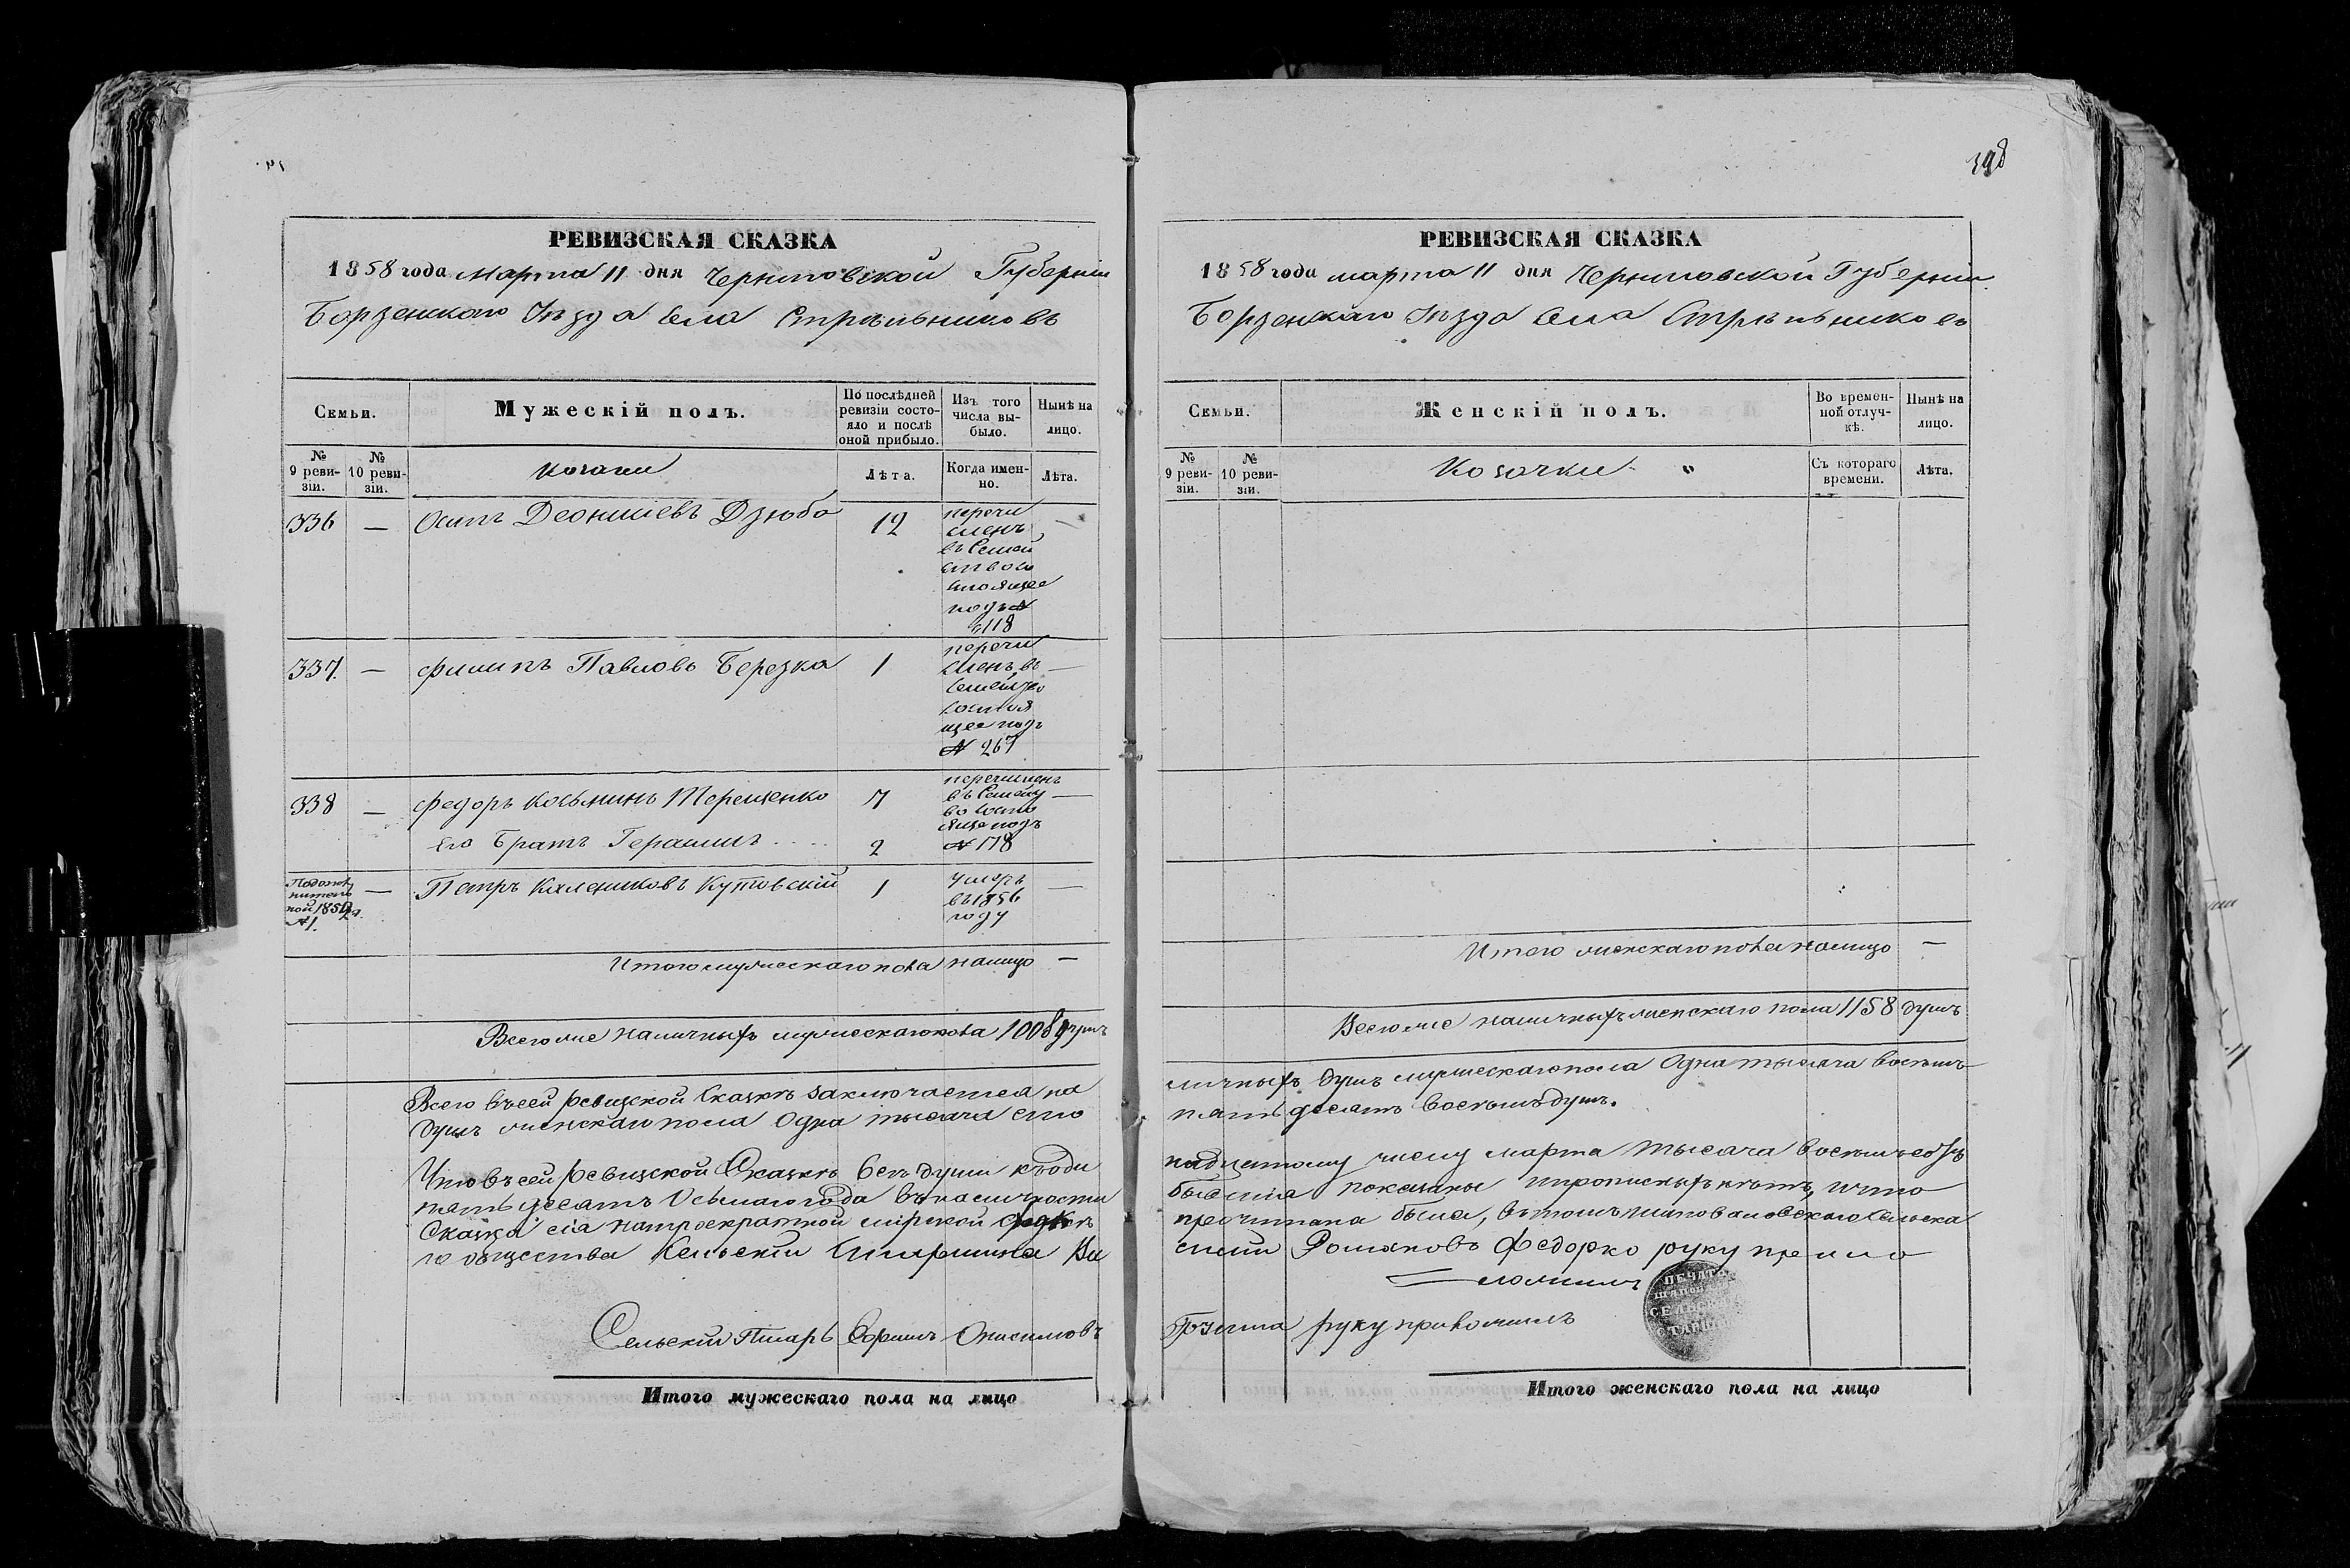 РЕВИЗСКАЯ СКАЗКА
1858 года марта 11 дня Черниговской Губерніи
Борзенскаго Уѣзда Села Стрѣльниковъ
Семьи.
Мужескій полъ.
По послѣдней ревизіи состояло и послѣ оной прибыло.
Изъ того числа выбыло.
Нынѣ на лицо.
№ 9 ревизіи.
№ 10 ревизіи.
Козаки
Лѣта.
Когда именно.
Лѣта.
336 — Осипъ Деонисіевъ Дзюба 12
перечи
сленъ
въ Семей
ство со
стоящее
подъ №
118
337. — Филипъ Павловъ Березка 1
перечи
сленъ въ —
состоя
щее подъ
№ 267
338 — Федоръ Косьминъ Терещенко 7
его Братъ Герасимъ 2
перечисленъ
въ Семей —
во состо
яще подъ
№ 178
1852
№ 1.
— Петръ Калениковъ Кутовскій 1
умеръ —
въ 1856
году
Итого мужескаго пола на лицо —
Всего же наличныхъ мужескаго пола 1008 душъ
Всего въ сей ревизской Сказкѣ заключается на
душъ женскаго пола Одна тысяча сто
Что въ сей ревизской Сказкѣ всѣ души къ оди
пять десять Осьмаго года въ наличности
Сказка сія на троекратной мірской
го общества Сельскій Старшина Ва
Сельскій Писарь Ефимъ Онисимовъ
Итого мужескаго пола на лицо
398
РЕВИЗСКАЯ СКАЗКА
1858 года марта 11 дня Черниговской Губерніи
Борзенскаго Уѣзда Села Стрѣльниковъ
Семьи.
Женскій полъ.
Во временной отлучкѣ.
Нынѣ на лицо.
№ 9 ревизіи.
№ 10 ревизіи.
Козачки
Съ котораго времени.
Лѣта.
Итого женскаго пола на лицо —
Всего же наличныхъ женскаго пола 1158 душъ
личныхъ душъ мужескаго пола Одна тысяча восемь
пять десять восемь душъ.
надцатому числу марта тысяча восемь сотъ
бывшія показаны и прописныхъ нѣтъ, и что
прочитана была, въ томъ Шаповаловскаго Сельска
силій Романовъ Федорко руку прило
ложилъ
руку приложилъ
ПЕЧАТЬ
СЕЛЬСК
Итого женскаго пола на лицо